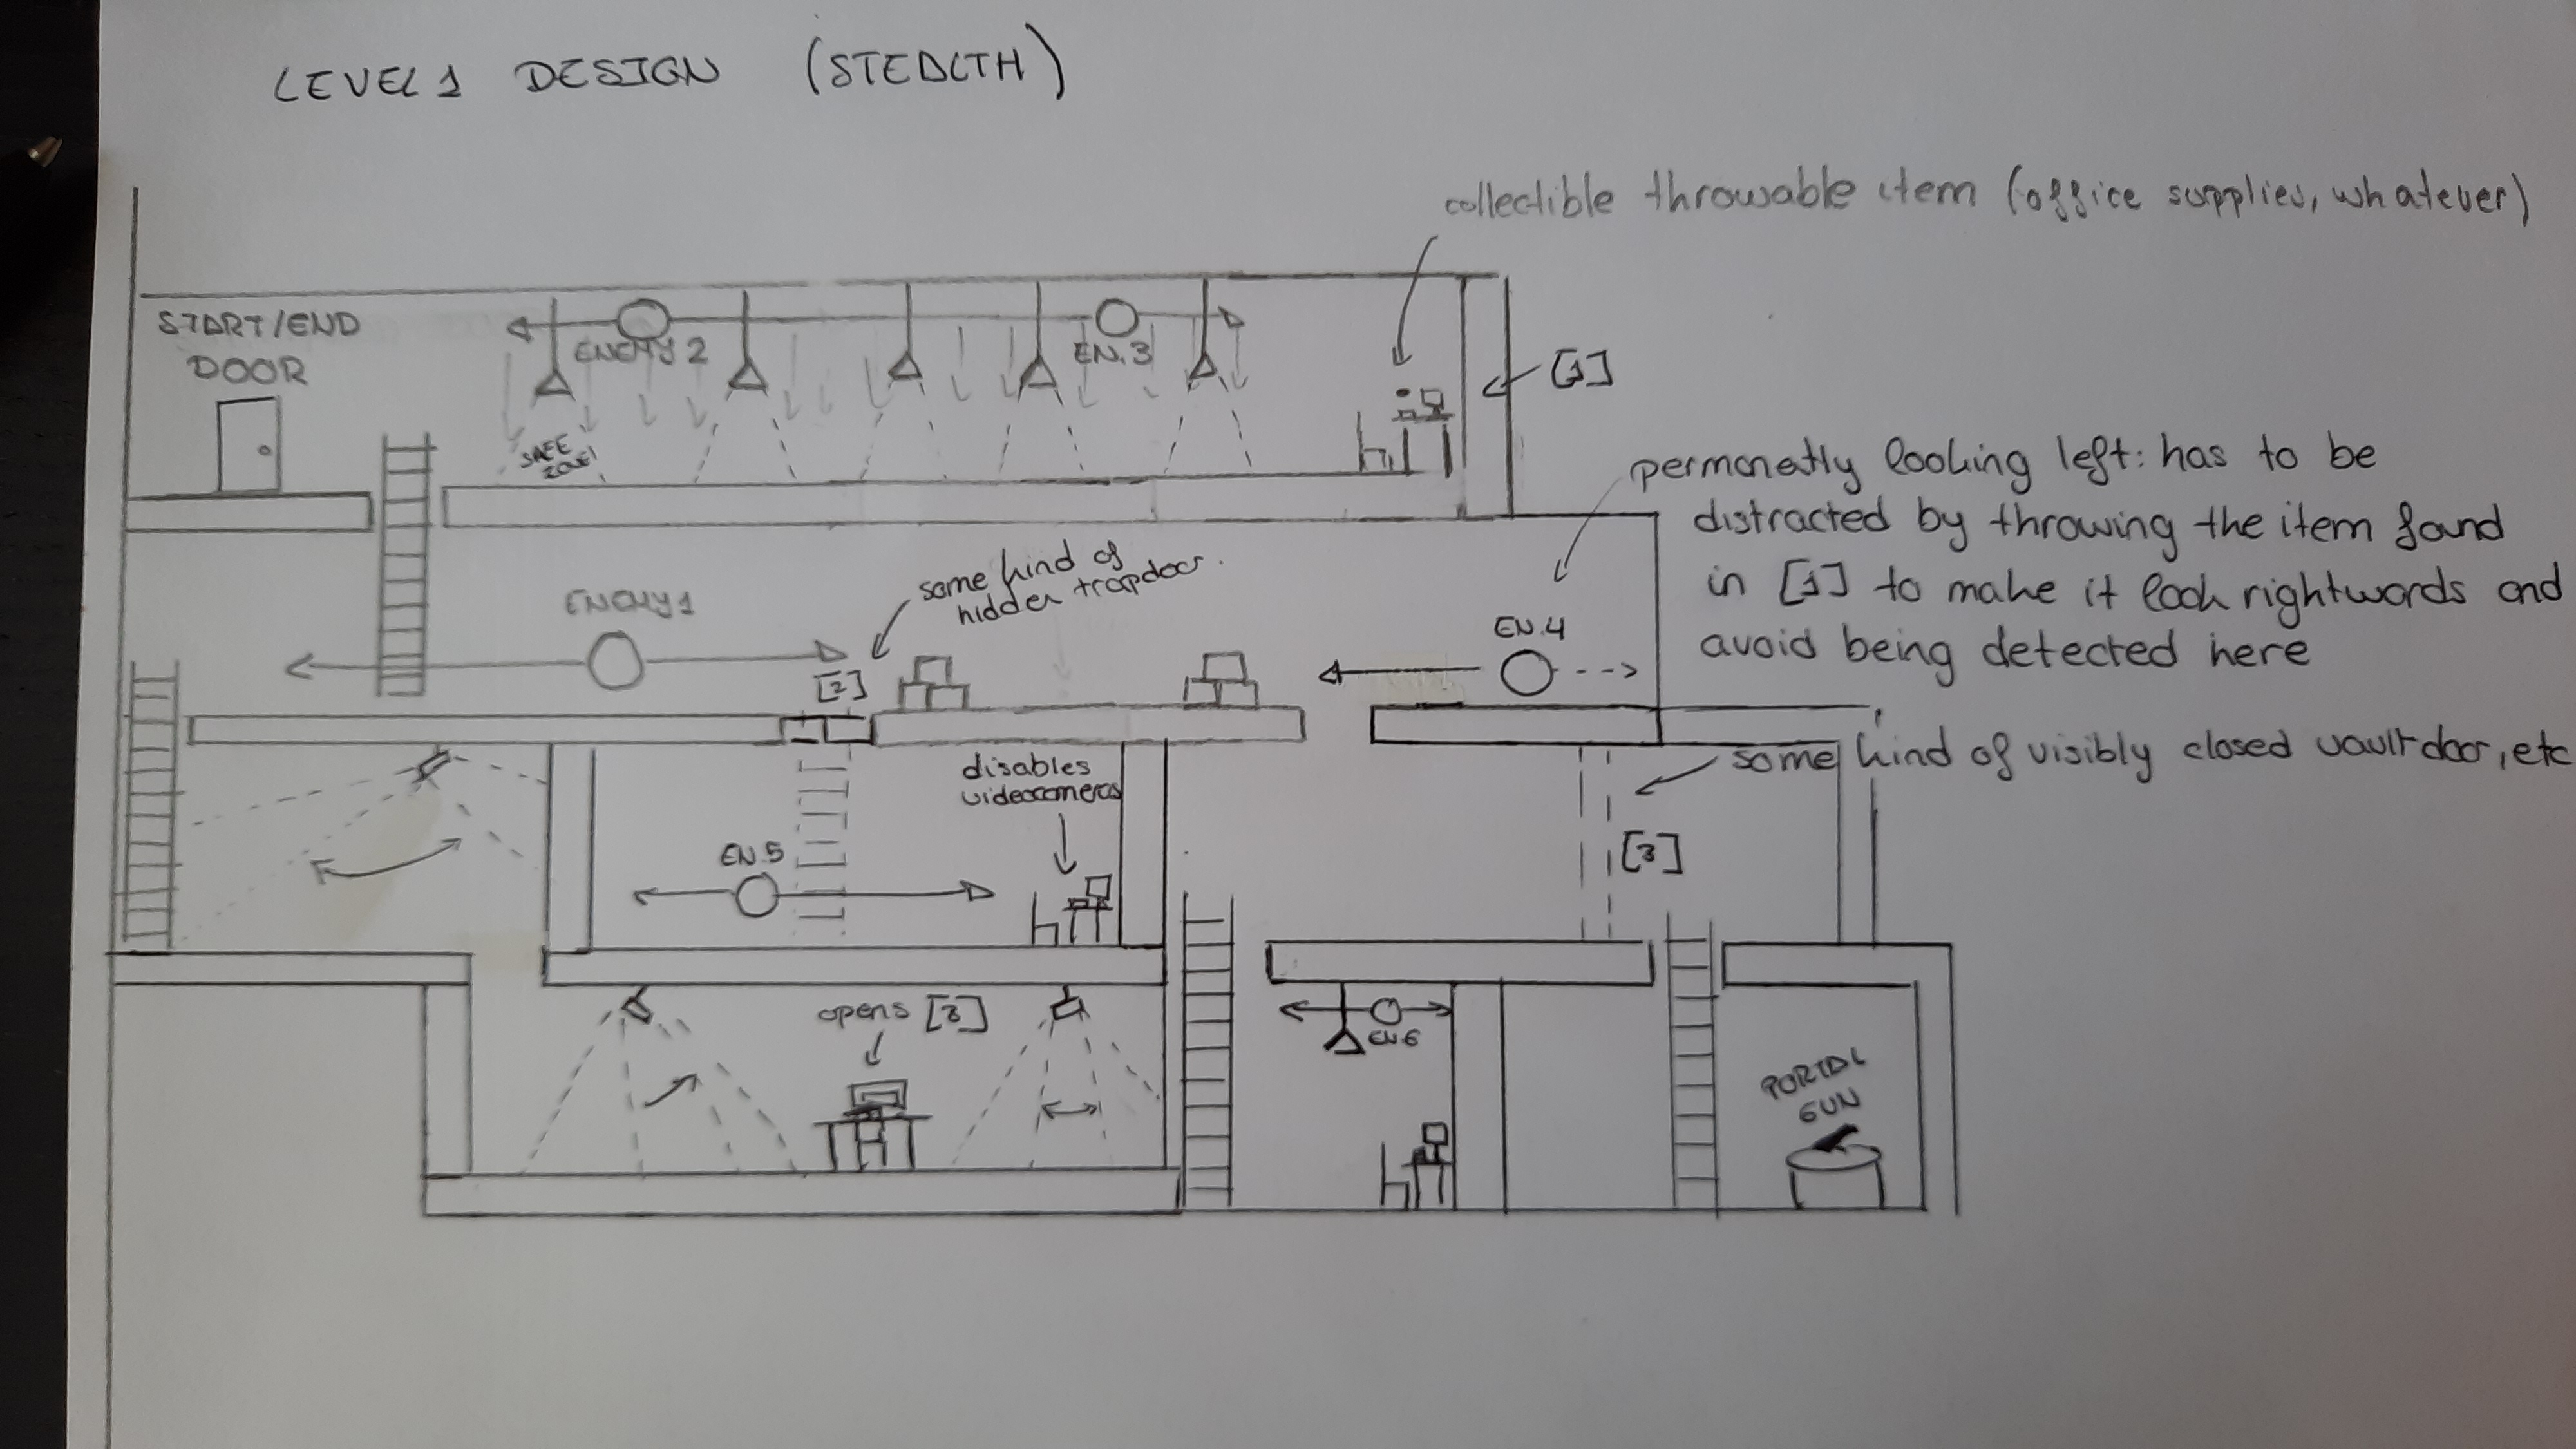 LEVEL 1 DESIGN (STEALTH)
collectible throwable item (office supplies, whatever)
START/END
DOOR
ENEMY 2
EN.3
SAFE
ZONE!
[1]
permanatly looking left: has to be
distracted by throwing the item found
in [1] to make it look rightwards and
avoid being detected here
some kind of
hidden trapdoor.
ENEMY 1
[2]
EN.4
some kind of visibly closed vault door, etc
disables
videocameras
EN.5
[3]
opens [3]
EN.6
PORTAL
GUN